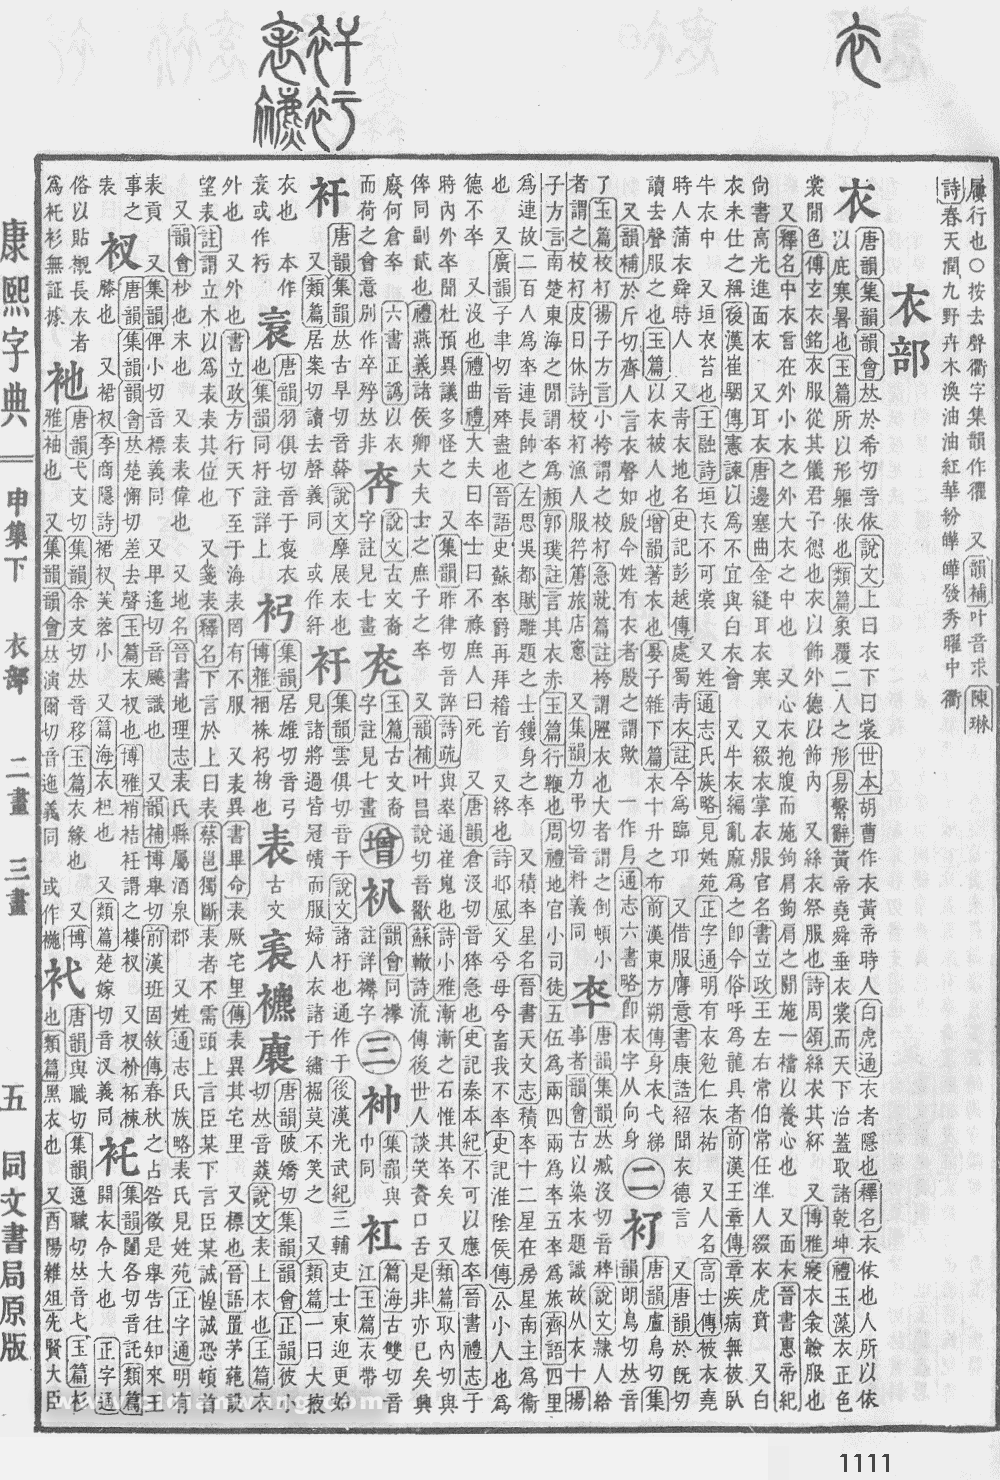 履行也○按去聲衢字集韻作忂　又韻補叶音求陳琳
詩春天潤九野卉木渙油油紅華紛曄曄發秀曜中衢
衣部
衣
唐韻集韻韻會𠀤於希切音依說文上曰衣下曰裳世本胡曹作衣黃帝時人白虎通衣者隱也釋名衣依也人所以依
以庇寒暑也玉篇所以形軀依也類篇象覆二人之形易繫辭黃帝堯舜垂衣裳而天下治蓋取諸乾坤禮玉藻衣正色
裳閒色傳玄衣銘衣服從其儀君子德也衣以飾外德以飾內　又絲衣祭服也詩周頌絲衣其紑　又博雅寢衣衾服也
又釋名中衣言在外小衣之外大衣之中也　又心衣抱腹而施鉤肩鉤肩之閒施一襠以養心也　又面衣晉書惠帝紀
尚書高光進面衣　又耳衣唐邊塞曲金縫耳衣寒　又綴衣掌衣服官名書立政王左右常伯常任準人綴衣虎賁　又白
衣未仕之稱後漢崔駰傳憲諫以爲不宜與白衣會　又牛衣編亂麻爲之卽今俗呼爲龍具者前漢王章傳章疾病無被臥
牛衣中　又垣衣苔也王融詩垣衣不可裳　又姓通志氏族略見姓苑正字通明有衣勉仁衣祐　又人名高士傳被衣堯
時人蒲衣舜時人　又靑衣地名史記彭越傳處蜀靑衣註今爲臨邛　又借服膺意書康誥紹聞衣德言　又唐韻於旣切
讀去聲服之也玉篇以衣被人也增韻著衣也晏子雜下篇衣十升之布前漢東方朔傳身衣弋綈
又韻補於斤切齊人言衣聲如殷今姓有衣者殷之謂歟　一作㐆通志六書略卽衣字从向身
二
𧘈
唐韻盧鳥切集
韻朗鳥切𠀤音
了玉篇校𧘈揚子方言小袴謂之校𧘈急就篇註袴謂脛衣也大者謂之倒頓小
者謂之校𧘈皮日休詩校𧘈漁人服箬簹旅店窻　又集韻力弔切音料義同
卒
唐韻集韻𠀤臧沒切音稡說文隸人給
事者韻會古以染衣題識故从衣十揚
子方言南楚東海之閒謂卒爲䫉郭璞註言其衣赤玉篇行鞭也周禮地官小司徒五伍爲兩四兩爲卒五卒爲旅齊語四里
爲連故二百人爲卒連長帥之左思吳都賦雕題之士鏤身之卒　又積卒星名晉書天文志積卒十二星在房星南主爲衞
也　又廣韻子聿切音殚盡也晉語史蘇卒爵再拜稽首　又終也詩邶風父兮母兮畜我不卒史記淮陰侯傳公小人也爲
德不卒　又沒也禮曲禮大夫曰卒士曰不祿庶人曰死　又唐韻倉沒切音猝急也史記秦本紀不可以應卒晉書禮志于
時內外卒聞杜預異議多怪之　又集韻昨律切音誶詩疏與崒通崔嵬也詩小雅漸漸之石惟其卒矣　又類篇取內切與
倅同副貳也禮燕義諸侯卿大夫士之庶子之卒　又韻補叶昌說切音歠蘇轍詩流傳後世人談笑資口舌是非亦已矣興
廢何倉卒　六書正譌以衣
而荷之會意別作卒殚𠀤非
㐮
字說文古文裔
字註見七畫
増
韻會同襻
註詳襻字
三
集韻與
巾同
䘪
篇海古雙切音
江玉篇衣帶
䘫
唐韻集韻𠀤古旱切音簳說文摩展衣也
又類篇居案切讀去聲義同　或作䊻
衧
集韻雲俱切音于說文諸衧也通作于後漢光武紀三輔吏士東迎更始
見諸將過皆冠幘而服婦人衣諸于繡䘿莫不笑之　又類篇一曰大掖
衣也　本作
衺或作衻
唐韻羽俱切音于衺衣
也集韻同衧註詳上
集韻居雄切音弓
博雅裀袾也
表
古文
唐韻陂矯切集韻韻會正韻彼小
切𠀤音說文表上衣也玉篇衣
外也　又外也書立政方行天下至于海表罔有不服　又表異書畢命表厥宅里傳表異其宅里　又標也晉語置茅蕝設
望表註謂立木以爲表表其位也　又箋表釋名下言於上曰表蔡邕獨斷表者不需頭上言臣某下言臣某誠惶誠恐頓首
又韻會杪也末也　又表表偉也　又地名晉書地理志表氏縣屬酒泉郡　又姓通志氏族略表氏見姓苑正字通明有
表貢　又集韻俾小切音標義同　又卑遙切音飇識也　又韻補博舉切前漢班固敘傳春秋之占咎徵是舉告往知來王
事之表
衩
唐韻集韻韻會𠀤楚懈切差去聲玉篇衣衩也博雅䘯袺衽謂之褸衩　又衩衸袥䘷
膝也　又裙衩李商隱詩裙衩芙蓉小　又篇海衣衵也　又類篇楚嫁切音汊義同
䘢
集韻闥各切音託類篇
開衣令大也　正字通
俗以貼襯長衣者
爲䘢衫無証據
䘝
唐韻弋支切集韻余支切𠀤音移玉篇衣緣也　又博
雅袖也　又集韻韻會𠀤演爾切音迤義同　或作㢮
䘞
唐韻與職切集韻逸職切𠀤音弋玉篇衫
也類篇黑衣也　又酉陽雜俎先賢大臣
康熙字典　申集下　衣部　二畫　三畫　五　同文書局原版
1111